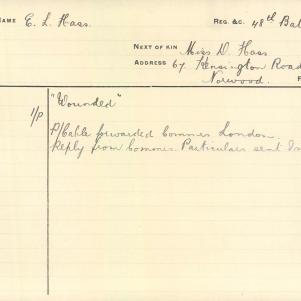 NAME E. L. Hass. REG. &C. 48th Bat
NEXT OF KIN Miss D. Hass
ADDRESS 67 Kensington Road
Norwood.
"Wounded"
1/p P/Cable forwarded Commrs London.
Reply from Commrs. Particulars sent